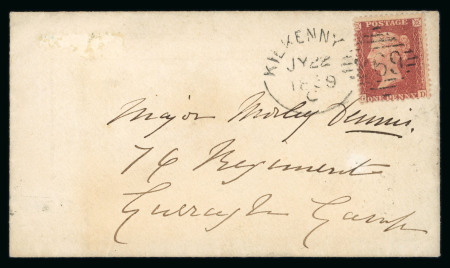 KILKENNY
JY 22
C
POSTAGE
ONE PENNY
Major Morley Dennis.
76 Regiment
Curragh Camp